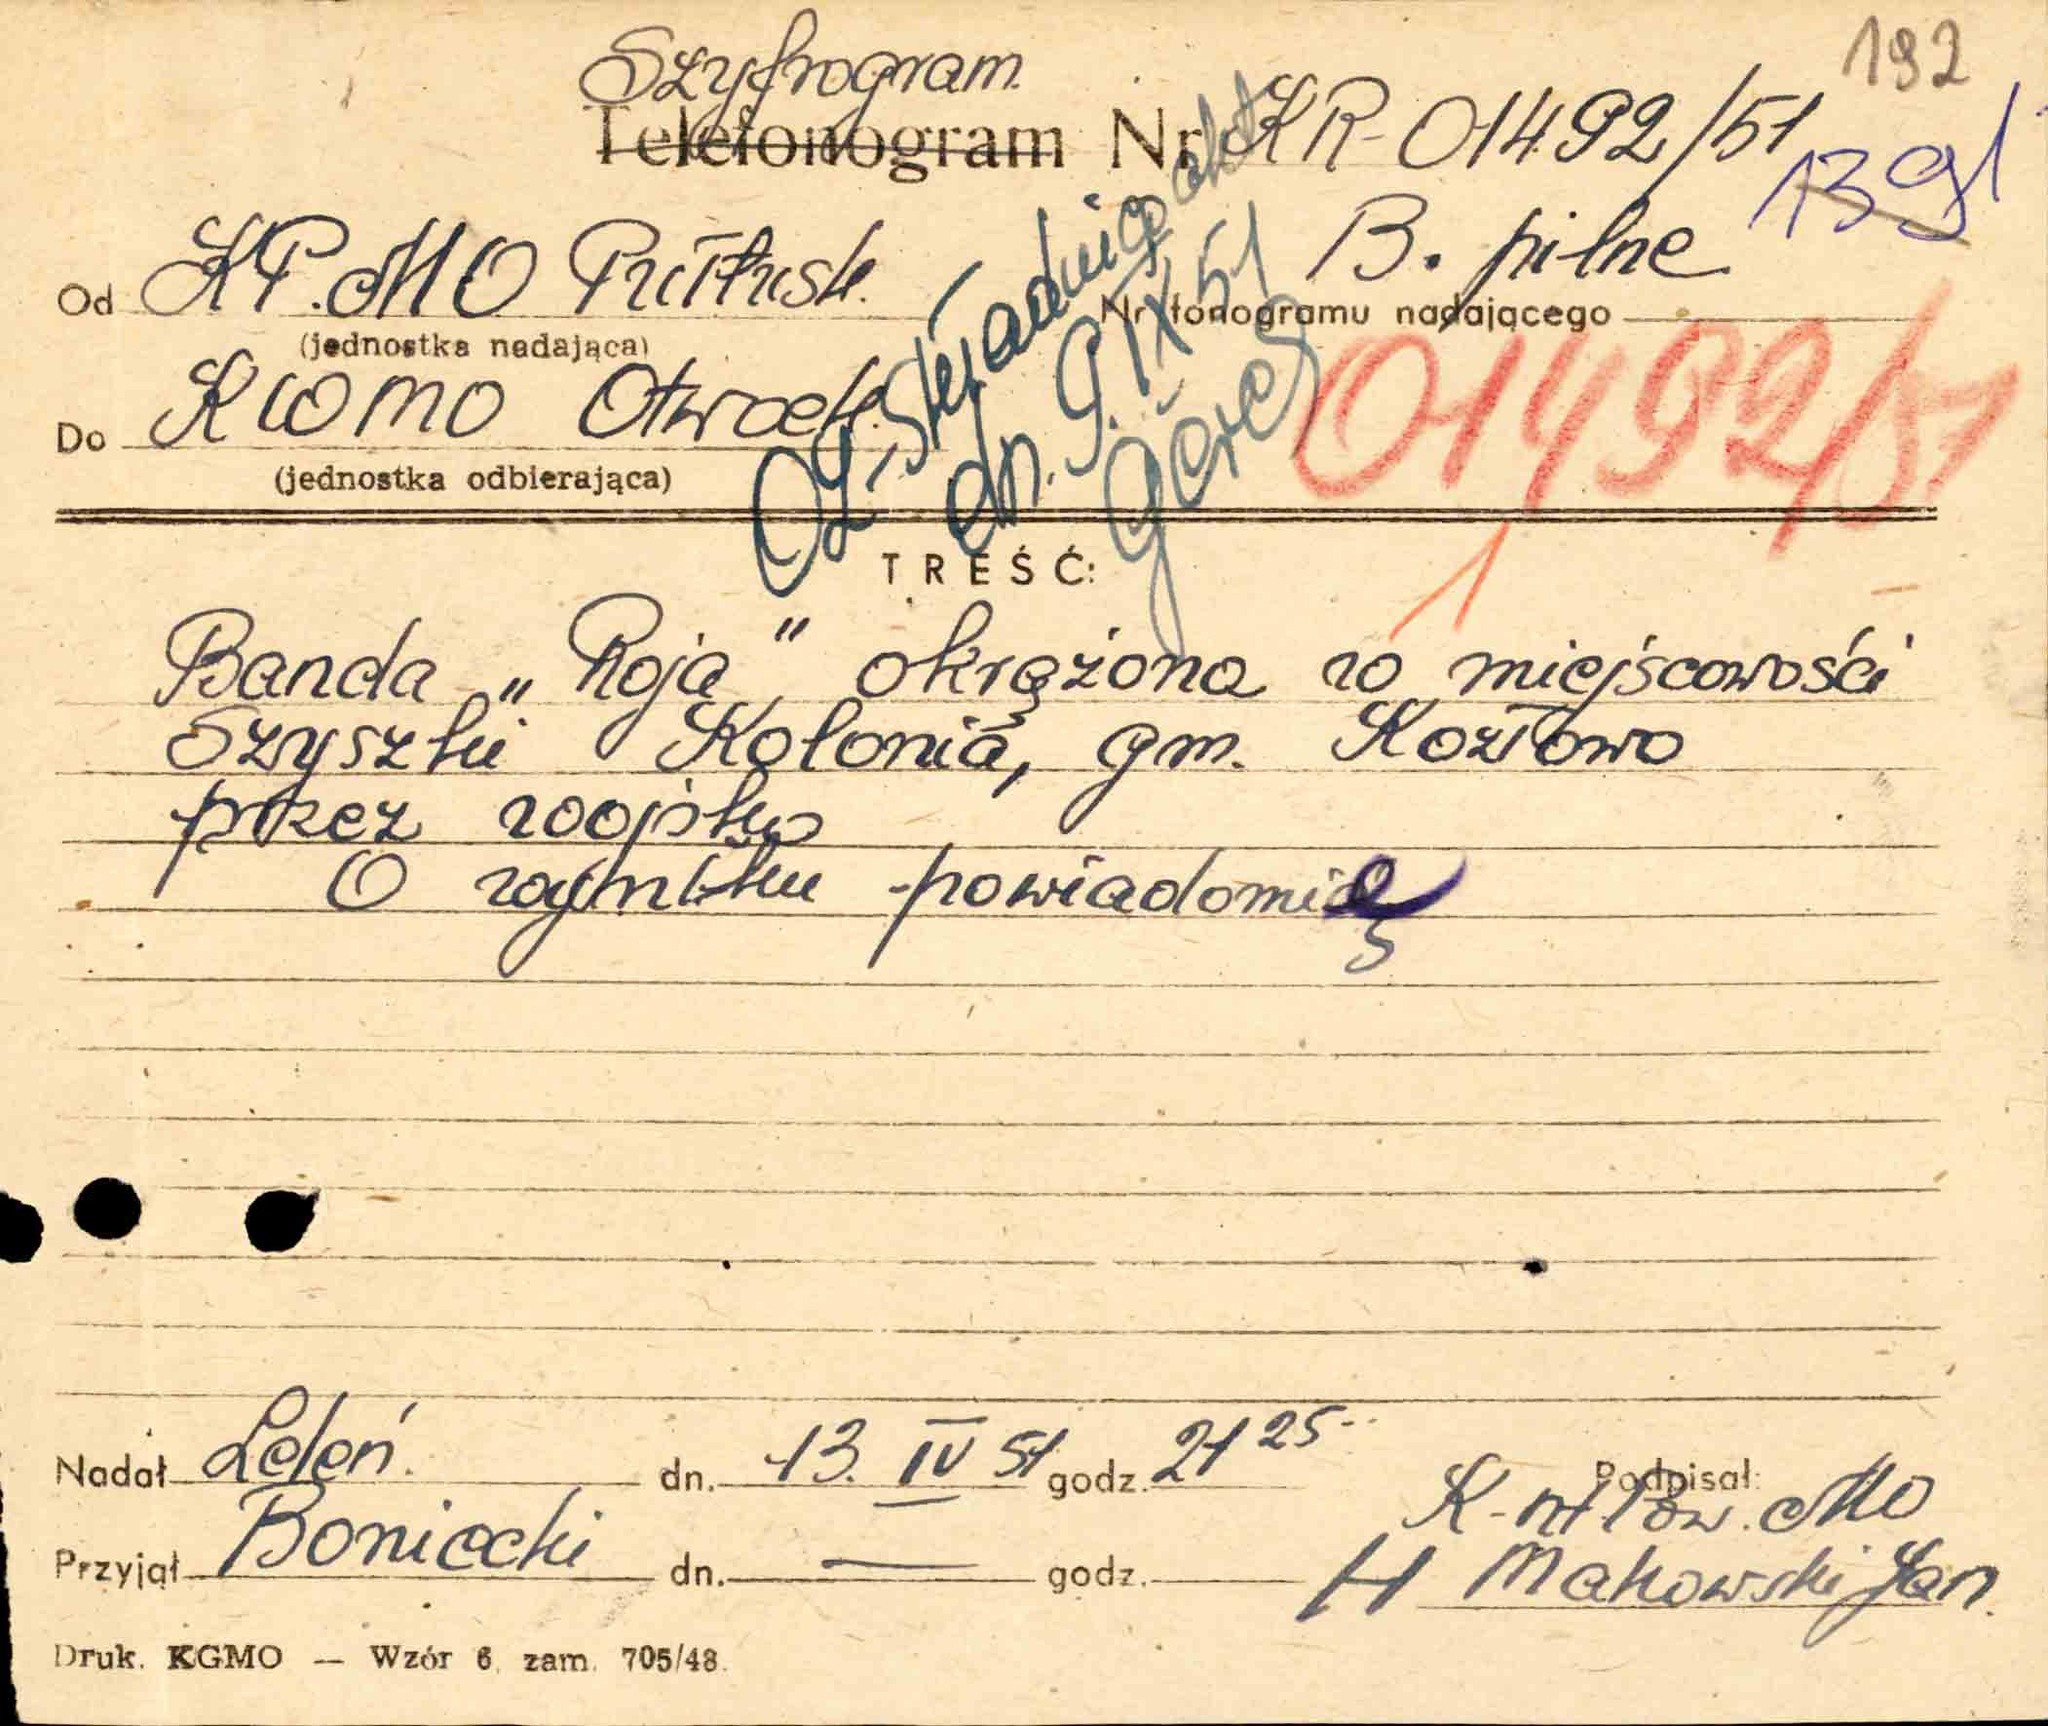 192
Szyfrogram
Telefonogram Nr KR-01492/51
139
B. pilne
Od KP.MO Pułtusk.
(jednostka nadająca)
Nr fonogramu nadającego
01492/51
Do KWMO Otwock.
(jednostka odbierająca)
dn. 9.IX 51
TREŚĆ:
Banda „Roja" okrążona w miejscowości
Szyszki Kolonia, gm. Kozłowo
przez wojsko
O wyniku powiadomię
Nadał Leleń. dn. 13. IV 51 godz. 21 25
Podpisał:
K-nt Pow. MO
Przyjął Boniecki dn. — godz.
Makowski Jan.
Druk. KGMO — Wzór 6. zam. 705/48.